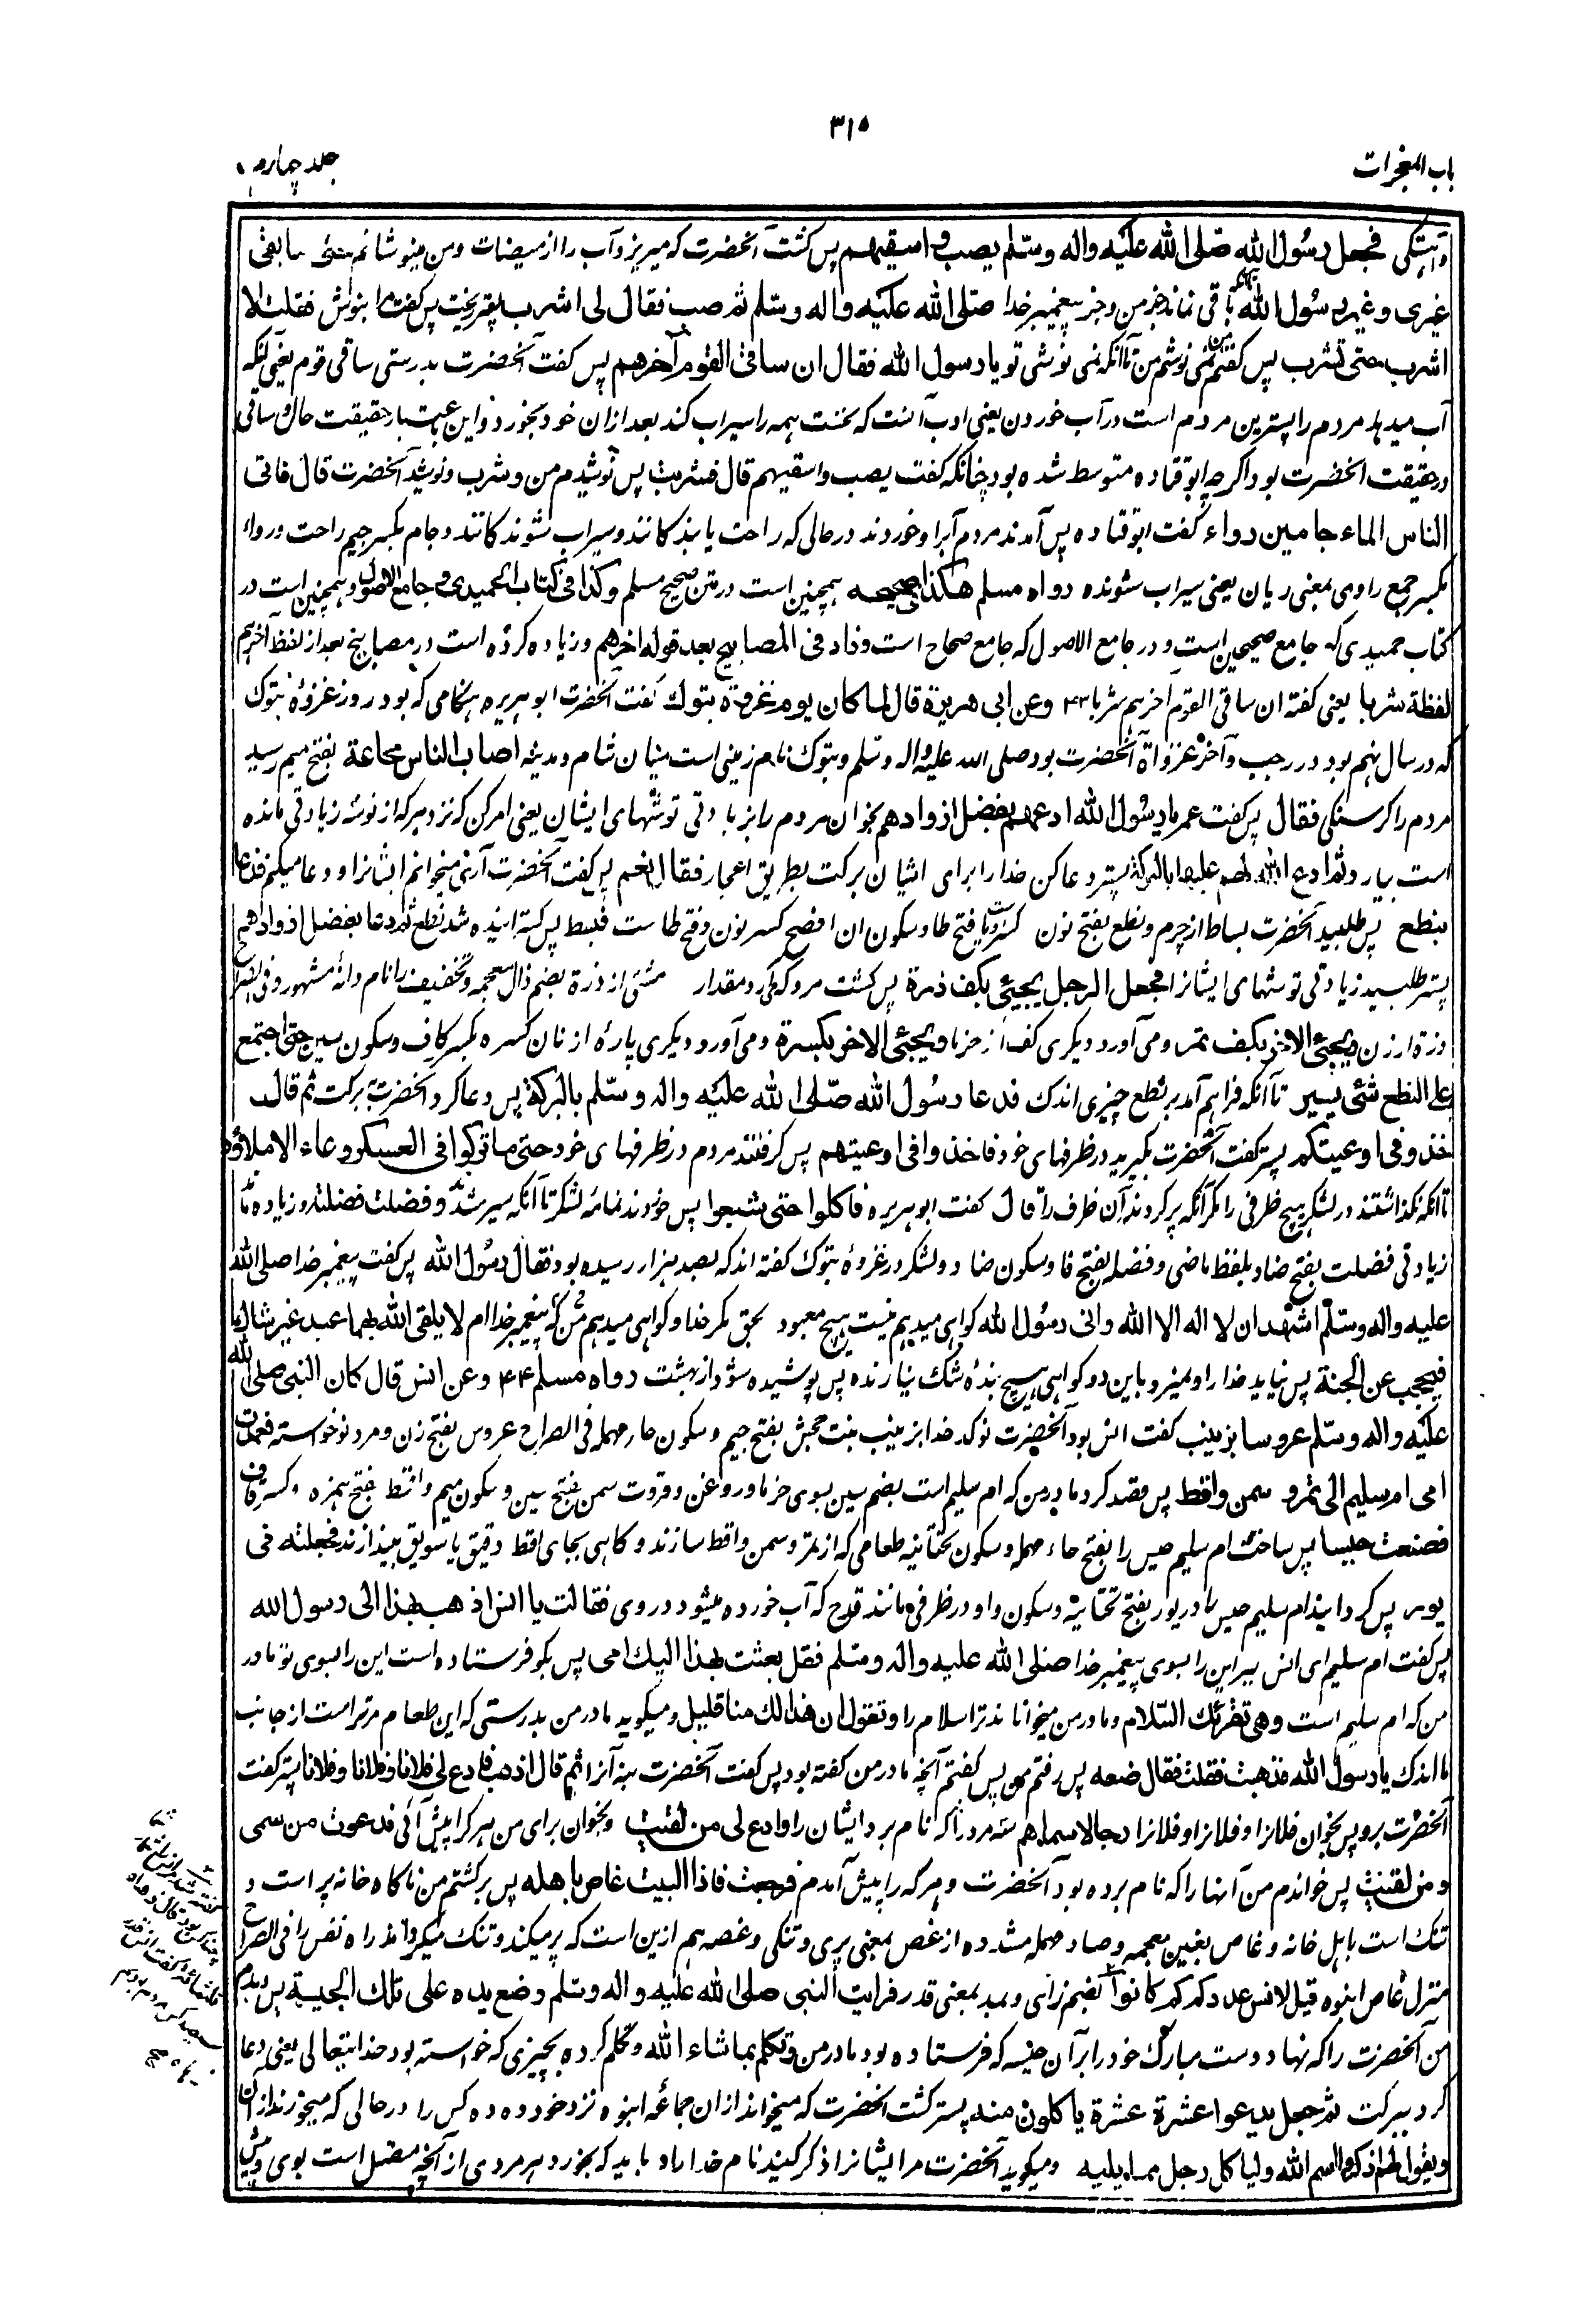 ۳۱۵
باب المعجزات
جلد چهارم
وآبستکی فجعل رسول الله صلی الله علیه واله وسلم یصب و اسقیهم پس کشت آنحضرت که میریزد آب را از میضات ومن مینوشانم حتی ما بقی
غیری وغیر رسول الله باقی نماند جز من وجز پیغمبر خدا صلی الله علیه واله وسلم ثم صب فقال لی اشرب پستر ریخت پس کفت مرا بنوش فقلت لا
اشرب حتی تشرب پس کفتم نمی نوشم من تا آنکه نمی نوشی تو یا رسول الله فقال ان ساقی القوم آخرهم پس کفت آنحضرت بدرستی ساقی قوم یعنی آنکه
آب میدهد مردم را پسترین مردم است در آب خوردن یعنی ادب آنست که نخست همه را سیراب کند بعد ازان خود بخورد و این باعتبار حقیقت حال و ساقی
در حقیقت آنحضرت بود اکرچه ابو قتاده متوسط شده بود چنانکه کفت یصب واسقیهم قال فشربت پس نوشیدم من وشرب ونوشید آنحضرت قال فاتی
الناس الماء جامین رواء کفت ابو قتاده پس آمدند مردم آبرا وخوردند در حالی که راحت یابندکانند وسیراب شوندکانند وجام بکسر جیم راحت ورواء
بکسر جمع راوی بمعنی ریان یعنی سیراب شونده رواه مسلم هکذا فی صحیحه همچنین است در متن صحیح مسلم وکذا فی کتاب الحمیدی وجامع الاصول وهمچنین است در
کتاب حمیدی که جامع صحیحین است ودر جامع الاصول که جامع صحاح است وزاد فی المصابیح بعد قوله اخرهم وزیاده کرده است در مصابیح بعد از لفظ اخرهم
لفظة شربا یعنی کفته ان ساقی القوم آخرهم شربا ۴۳ وعن ابی هریرة قال لما کان یوم غزوة تبوک کفت آنحضرت ابو هریره هنکامی که بود روز غزوۀ تبوک
که در سال نهم بود در رجب وآخر غزوات آنحضرت بود صلی الله علیه واله وسلم وتبوک نام زمینی است میان شام ومدینه اصاب الناس مجاعة بفتح میم رسید
مردم را کرسنکی فقال پس کفت عمر یا رسول الله ادعهم بفضل ازوادهم بخوان مردم را بزیادتی توشهای ایشان یعنی امر کن که نزد هر که از توشه زیادتی مانده
است بیارد ثم ادع الله لهم علیها بالبرکة پستر دعا کن خدا را برای ایشان برکت بطریق اعجاز فقال نعم پس کفت آنحضرت آری میخوانم ایشانرا ودعا میکنم فدعا
بنطع پس طلبید آنحضرت بساط از چرم ونطع بفتح نون کسر ونیز بفتح طا وسکون ان افصح کسر نون وفتح طاست فبسط پس کسترانیده شد نطع ثم دعا بفضل ازوادهم
پستر طلبید زیادتی توشهای ایشانرا فجعل الرجل یجیئ بکف ذرة پس کشت مرد که می آورد مقدار مشتی از ذرة بضم ذال معجمه وتخفیف را نام دانۀ مشهور وفی الصراح
ذرة ارزن ویجیئ الاخر بکف تمر ومی آورد دیکری کف از خرما ویجیئ الاخر بکسرة ومی آورد دیکری پارۀ از نان کسره بکسر کاف وسکون سین حتی اجتمع
علی النطع شئ یسیر تا آنکه فراهم آمد بر نطع چیزی اندک فدعا رسول الله صلی الله علیه واله وسلم بالبرکة پس دعا کرد آنحضرت ببرکت ثم قال
خذوا فی اوعیتکم پستر کفت آنحضرت بکیرید در ظرفهای خود فاخذوا فی اوعیتهم پس کرفتند مردم در ظرفهای خود حتی ما ترکوا فی العسکر وعاء الا ملاؤه
تا آنکه نکذاشتند در لشکر هیچ ظرفی را مکر آنکه پر کردند آن ظرف را قال کفت ابو هریره فاکلوا حتی شبعوا پس خوردند تمامه لشکر تا آنکه سیر شدند وفضلت فضلة وزیاده ماند
زیادتی فضلت بفتح ضاد بلفظ ماضی وفضله بفتح فا وسکون ضاد ولشکر در غزوۀ تبوک کفته اند که بصد هزار رسیده بود فقال رسول الله پس کفت پیغمبر خدا صلی الله
علیه واله وسلم اشهد ان لا اله الا الله وانی رسول الله کواهی میدهم نیست هیچ معبود بحق مکر خدا وکواهی میدهم من که پیغمبر خدا ام لا یلقی الله بهما عبد غیر شاک
فیحجب عن الجنة پس نیاید خدا را ونمیرد باین دو کواهی هیچ بندۀ شک نیارنده پس پوشیده شود از بهشت رواه مسلم ۴۴ وعن انس قال کان النبی صلی الله
علیه واله وسلم عروسا بزینب کفت انس بود آنحضرت نو کدخدا بزینب بنت جحش بفتح جیم وسکون حار مهمله فی الصراح عروس بفتح زن ومرد نوخواسته فعمدت
امی ام سلیم الی تمر وسمن واقط پس قصد کرد مادر من که ام سلیم است بضم سین بسوی خرما وروغن وقروت سمن بفتح سین وسکون میم واقط بفتح همزه وکسر قاف
فصنعت حیسا پس ساخت ام سلیم حیس را بفتح حاء مهمله وسکون تحتانیه طعامی که از تمر وسمن واقط سازند وکاهی بجای اقط دقیق یا سویق بیندازند فجعلته فی
تور پس کردانید ام سلیم حیس را در تور بفتح تحتانیه وسکون واو در ظرفی مانند قدح که آب خورده میشود در وی فقالت یا انس اذهب بهذا الی رسول الله
پس کفت ام سلیم ای انس ببر این را بسوی پیغمبر خدا صلی الله علیه واله وسلم فقل بعثت بهذا الیک امی پس بکو فرستاده است این را بسوی تو مادر
من که ام سلیم است وهی تقرئک السلام ومادر من میخواناند ترا سلام را وتقول ان هذا لک منا قلیل ومیکوید مادر من بدرستی که این طعام مر تراست از جانب
ما اندک یا رسول الله فذهبت فقلت فقال ضعه پس رفتم من پس کفتم آنچه مادر من کفته بود پس کفت آنحضرت بنه آنرا ثم قال اذهب فادع لی فلانا وفلانا وفلانا پستر کفت
آنحضرت برو پس بخوان فلانرا وفلانرا وفلانرا رجالا سماهم سه مرد را که نام برد ایشان را وادع لی من لقیت وبخوان برای من هر کرا پیش آئی فدعوت من سمی
ومن لقیت پس خواندم من آنها را که نام برده بود آنحضرت وهر که را پیش آمدم فرجعت فاذا البیت غاص باهله پس برکشتم من ناکاه خانه پر است و
تنک است باهل خانه وغاص بغین معجمه وصاد مهمله مشدده از غص بمعنی پری وتنکی وغصه هم ازین است که پر میکند وتنک میکرداند راه نفس را فی الصراح
منزل غاص انبوه قیل لانس عدد کم کم کانوا بضم زای وبمد بمعنی قدر فرایت النبی صلی الله علیه واله وسلم وضع یده علی تلک الحیسة پس دیدم
من آنحضرت را که نهاد دست مبارک خود را بر آن حیسه که فرستاده بود مادر من وتکلم بما شاء الله وتکلم کرده بچیزی که خواسته بود خدایتعالی یعنی دعا
کرد ببرکت ثم جعل یدعو عشرة عشرة یاکلون منه پستر کشت آنحضرت که میخواند ازان جماعۀ انبوه نزد خود ده ده کس را در حالی که میخورند ازان
ویقول لهم اذکروا اسم الله ولیاکل کل رجل مما یلیه ومیکوید آنحضرت مر ایشانرا ذکر کنید نام خدا را وباید که بخورد هر مردی از آنچه متصل است بوی وپیش